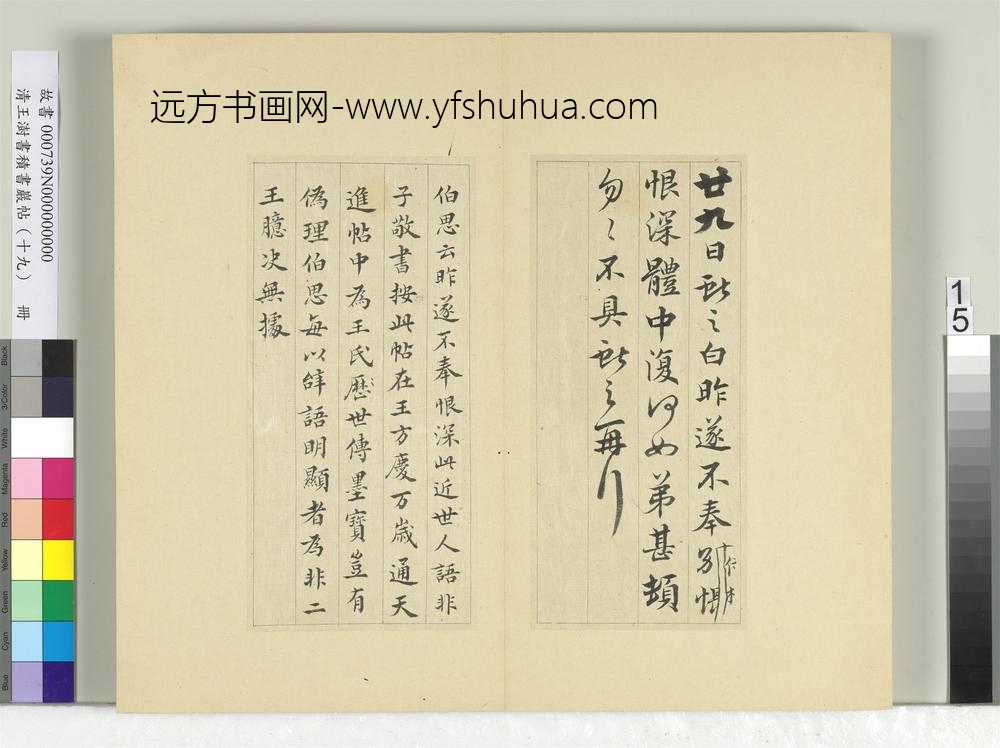 远方书画网-www.yfshuhua.com
廿九日獻之白昨遂不奉別悵
恨深體中復何如弟甚頓
勿〻不具獻之再行
伯思云昨遂不奉恨深此近世人語非
子敬書按此帖在王方慶万歲通天
進帖中為王氏歷世傳墨寶豈有
偽理伯思每以辞語明顯者為非二
王臆决無據
故書 000739N000000000
清王澍書積書巖帖(十九) 冊
1
5
Black
3/Color
White
Magenta
Red
Yellow
Green
Cyan
Blue